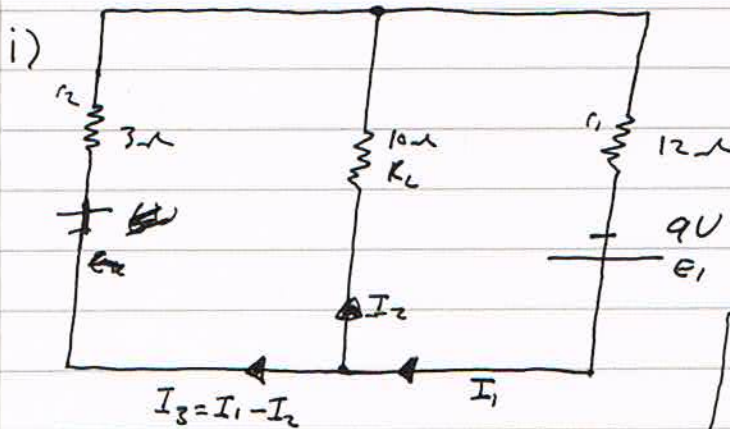 i)
r₂
3Ω
10Ω
R_L
r₁
12Ω
9V
E₁
I₂
I₃ = I₁ - I₂
I₁